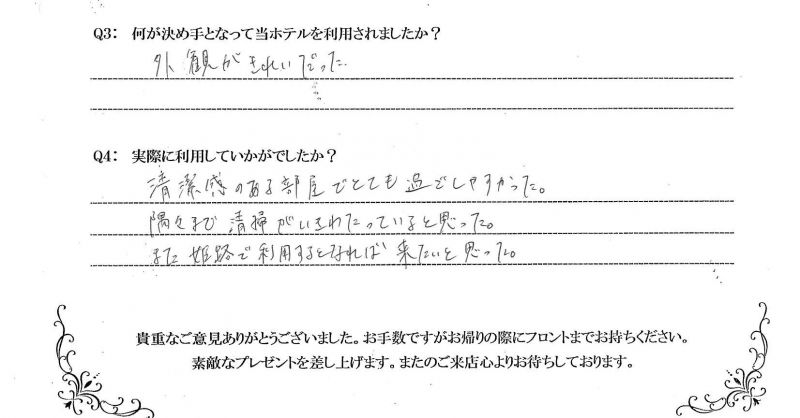 Q3： 何が決め手となって当ホテルを利用されましたか？
外観がきれいだった.
Q4： 実際に利用していかがでしたか？
清潔感のある部屋でとても過ごしやすかった。
隅々まで清掃がいきわたっていると思った。
また姫路で利用するとなれば来たいと思った。
貴重なご意見ありがとうございました。お手数ですがお帰りの際にフロントまでお持ちください。
素敵なプレゼントを差し上げます。またのご来店心よりお待ちしております。